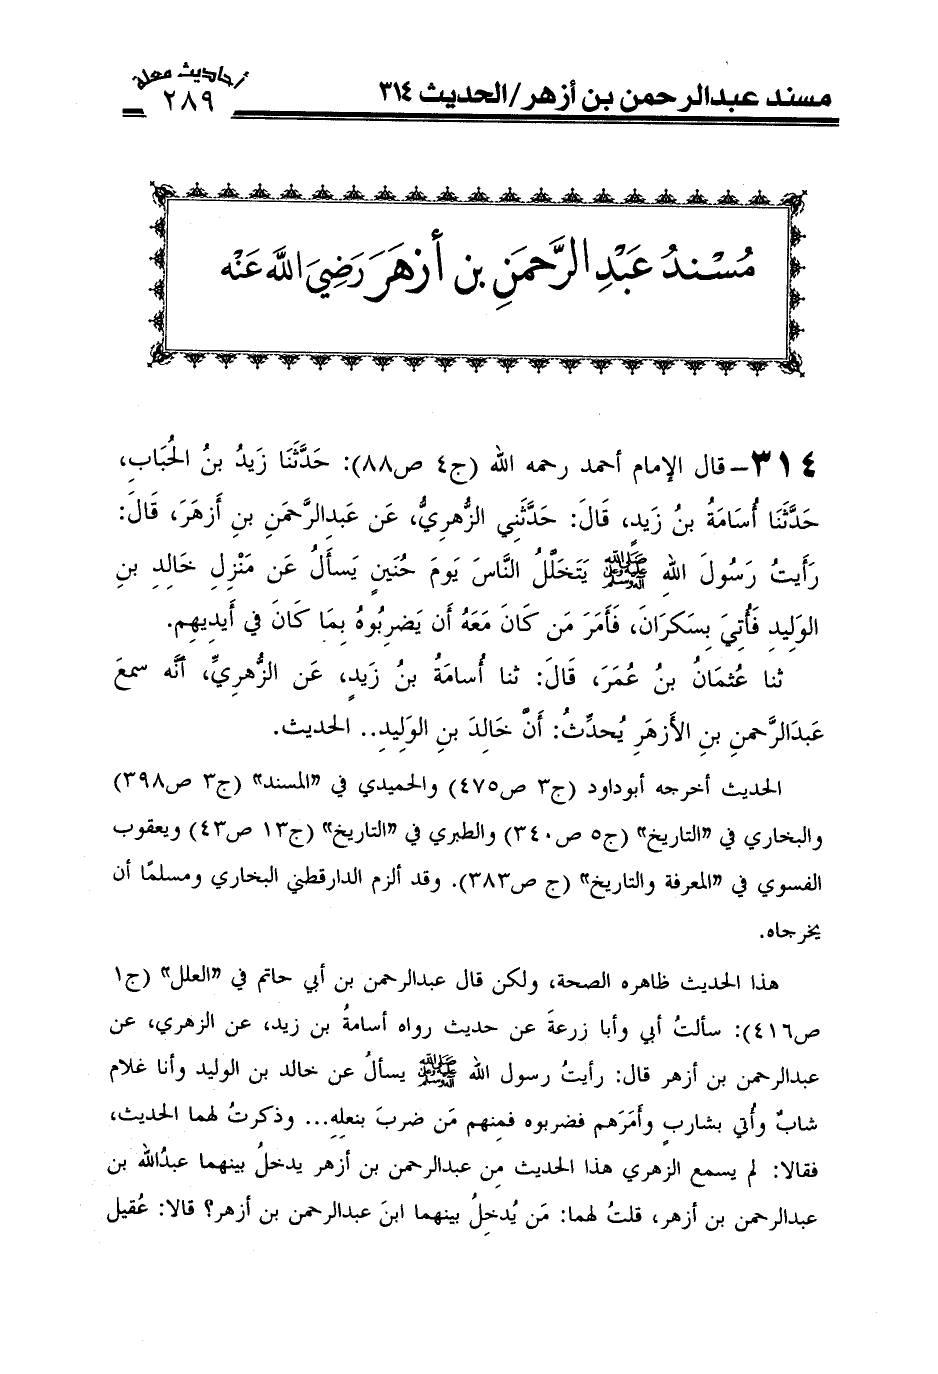 مسند عبدالرحمن بن أزهر/الحديث ٣١٤
أحاديث معلة
٢٨٩
مُسْنَدُ عَبْدِ الرَّحْمَنِ بن أزهَرَ رَضِيَ اللَّه عَنْه
٣١٤- قال الإمام أحمد رحمه الله (ج٤ ص٨٨): حَدَّثَنَا زَيدُ بنُ الحُبَابِ،
حَدَّثَنَا أُسَامَةُ بنُ زَيدٍ، قَالَ: حَدَّثَنِي الزُّهرِيُّ، عَن عَبدِالرَّحمَنِ بنِ أَزهَرَ، قَالَ:
رَأَيتُ رَسُولَ اللهِ ﷺ يَتَخَلَّلُ النَّاسَ يَومَ حُنَينٍ يَسأَلُ عَن مَنْزِلِ خَالِدِ بنِ
الوَلِيدِ فَأُتِيَ بِسَكرَانَ، فَأَمَرَ مَن كَانَ مَعَهُ أَن يَضرِبُوهُ بِمَا كَانَ فِي أَيدِيهِم.
ثنا عُثمَانُ بنُ عُمَرَ، قَالَ: ثنا أُسَامَةُ بنُ زَيدٍ، عَن الزُّهرِيِّ، أنَّه سمعَ
عَبدَالرَّحمنِ بنِ الأَزهَرِ يُحدِّثُ: أَنَّ خَالِدَ بنِ الوَلِيدِ.. الحديث.
الحديث أخرجه أبوداود (ج٣ ص٤٧٥) والحميدي في «المسند» (ج٣ ص٣٩٨)
والبخاري في «التاريخ» (ج٥ ص٣٤٠) والطبري في «التاريخ» (ج١٣ ص٤٣) ويعقوب
الفسوي في «المعرفة والتاريخ» (ج ص٣٨٣). وقد ألزم الدارقطني البخاري ومسلمًا أن
يخرجاه.
هذا الحديث ظاهره الصحة، ولكن قال عبدالرحمن بن أبي حاتم في «العلل» (ج١
ص٤١٦): سألتُ أبي وأبا زرعةَ عن حديث رواه أسامةُ بن زيد، عن الزهري، عن
عبدالرحمن بن أزهر قال: رأيتُ رسول الله ﷺ يسألُ عن خالد بن الوليد وأنا غلام
شابٌ وأُتي بشاربٍ وأَمَرَهم فضربوه فمِنهم مَن ضربَ بنعلِهِ... وذكرتُ لهما الحديث،
فقالا: لم يسمع الزهري هذا الحديث مِن عبدالرحمن بن أزهر يدخلُ بينهما عبدُالله بن
عبدالرحمن بن أزهر، قلتُ لهما: مَن يُدخِلُ بينهما ابنَ عبدالرحمن بن أزهر؟ قالا: عُقيل